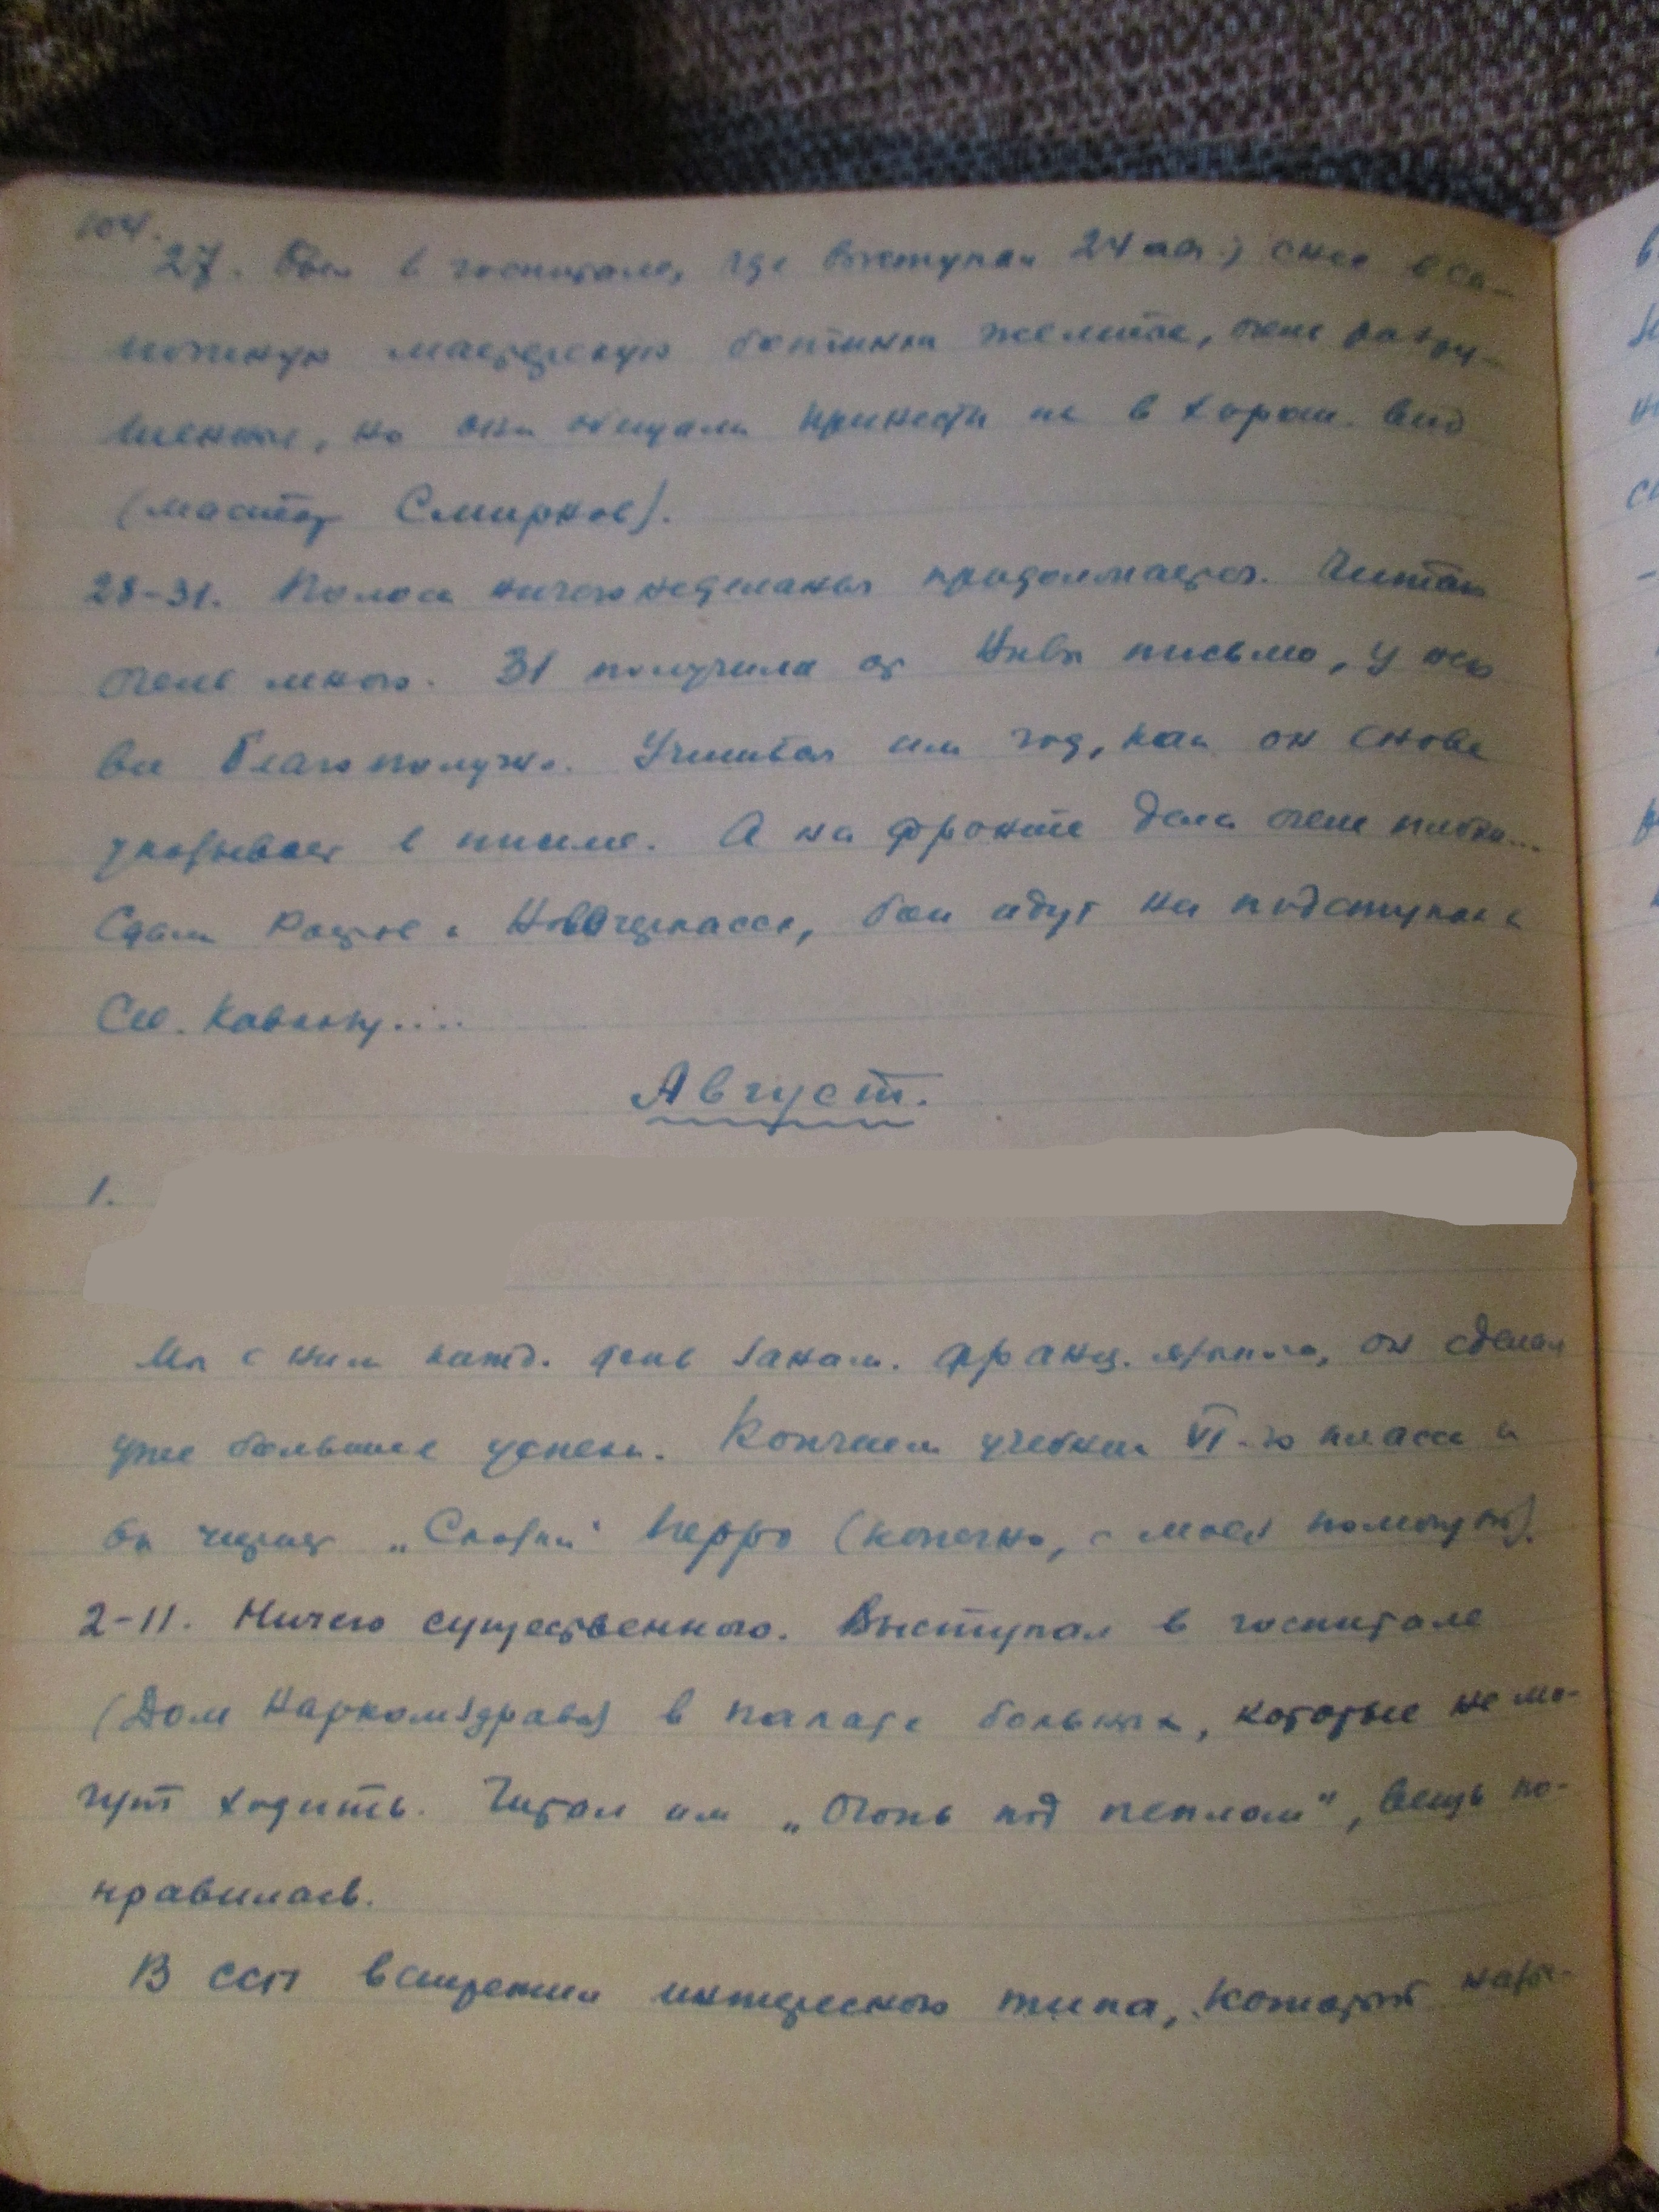 104.
27. Был в госпитале, где выступал 24-го; снес в са-
пожную мастерскую ботинки желтые, очень разру-
шенные, но они обещали привести их в хорош. вид
(мастер Смирнов).
28-31. Полоса ничегонеделанья продолжается. Читаю
очень много. 31 получила от письмо, у него
все благополучно. Учиться им год, как он снова
указывает в письме. А на фронте дела очень плохи...
Сдали Ростов и Новочеркасск, бои идут на подступах к
Сев. Кавказу....
Август.
1.
Мы с ним кажд. день заним. франц. языком, он сделал
уже большие успехи. Кончаем учебник VI-го класса и
он читает „Сказки" Перро (конечно, с моей помощью).
2-11. Ничего существенного. Выступал в госпитале
(Дом Наркомздрава) в палате больных, которые не мо-
гут ходить. Читал им „Огонь под пеплом", вещь по-
нравилась.
В ССП встретил интересного типа, который назы-